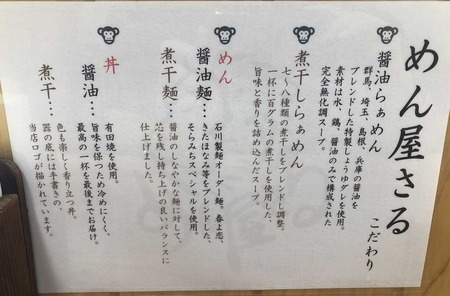 めん屋さる
こだわり
醤油らぁめん
群馬、埼玉、島根、兵庫の醤油を
ブレンドした特製しょうゆダレを使用。
素材は水、鶏、醤油のみで構成された
完全無化調スープ。
煮干しらぁめん
七～八種類の煮干しをブレンドし調整。
一杯に百グラムの煮干しを使用した、
旨味と香りを詰め込んだスープ。
めん
醤油麺…
石川製麺オーダー麺。春よ恋、
きたほなみ等をブレンドした、
そらみちスペシャルを使用。
煮干麺…
醤油のしなやかな麺に対して、
芯を残し持ち上げの良いバランスに
仕上げました。
丼
醤油…
有田焼を使用。
旨味を保つため冷めにくく、
最高の一杯を最後までお届け。
煮干…
色も楽しく香り立つ丼。
器の底には手書きの、
当店ロゴが描かれています。